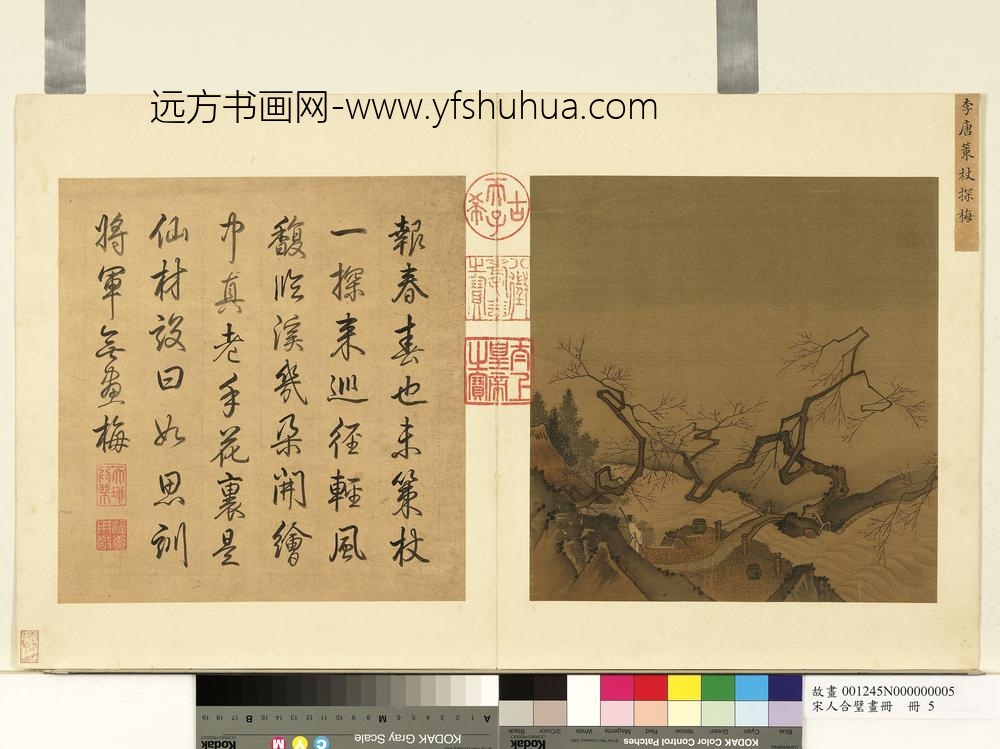 远方书画网-www.yfshuhua.com
李唐策杖探梅
報春春也未策杖
一探来巡徑輕風
馥临溪幾朵開繪
巾真老手花裏是
仙材設曰如思訓
將軍無畫梅
古
希
天子
八徵
耄念
之寶
太上
皇帝
之寶
KODAK Gray Scale
Kodak
A 1 2 3 4 5 6 M 8 9 10 11 12 13 14 15 B 17 18 19
KODAK Color Control Patches
Blue Cyan Green Yellow Red Magenta White 3/Color Black
Kodak
故畫 001245N000000005
宋人合璧畫冊 冊 5